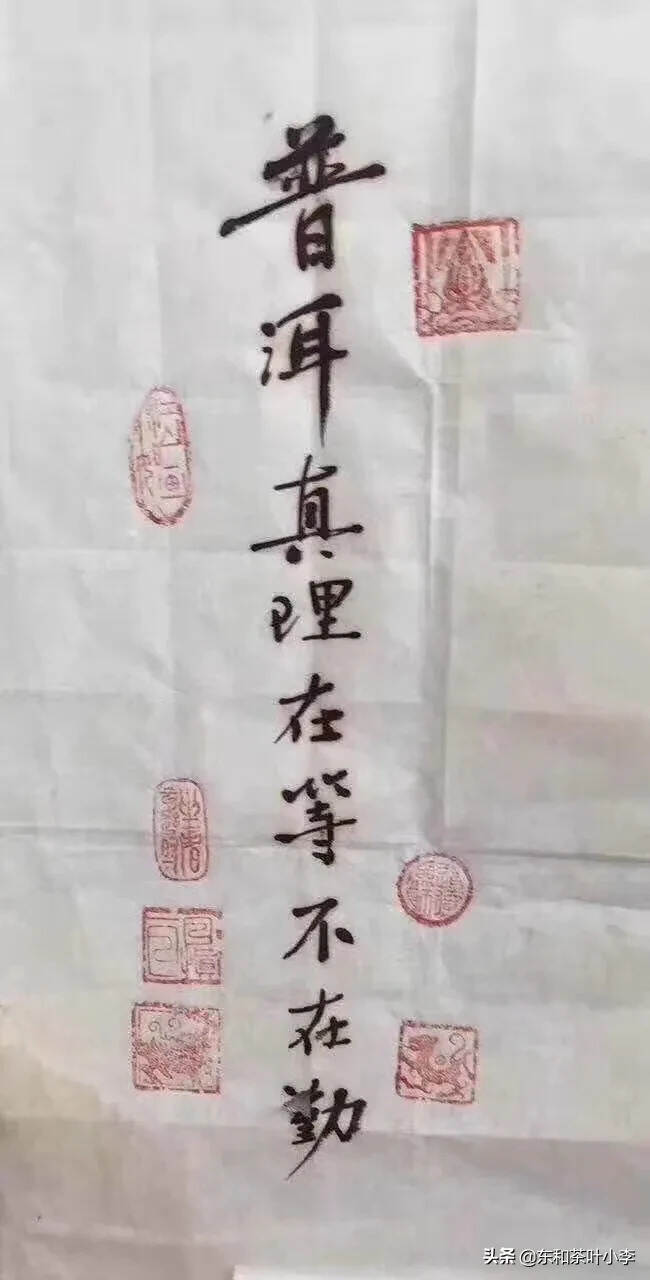 普洱真理在等不在勤
头条 @东和茶叶小李